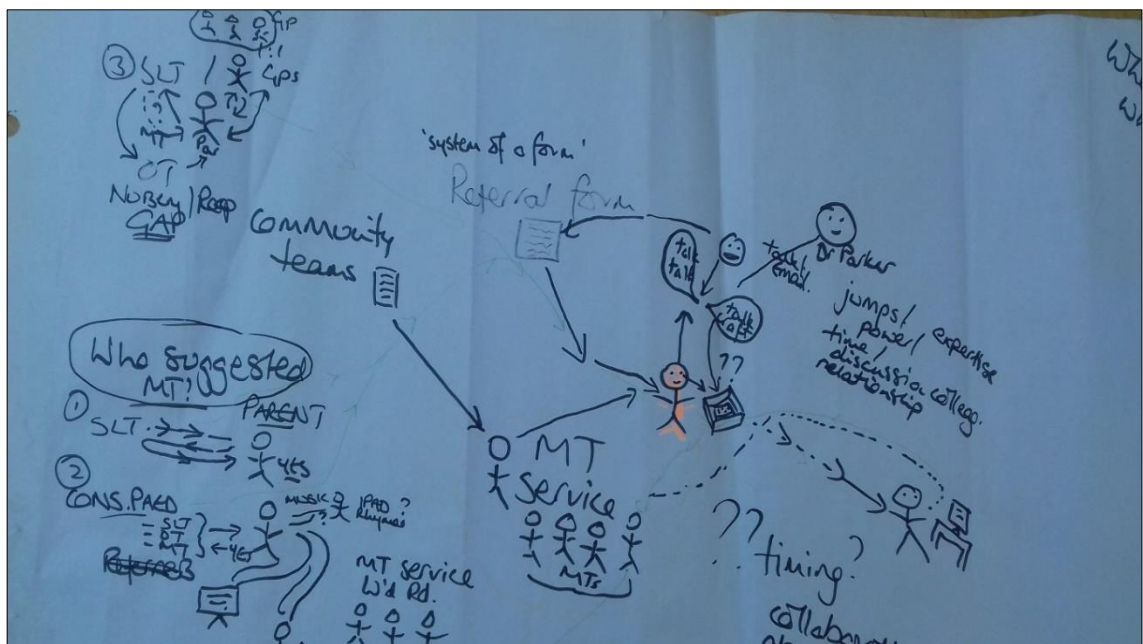 GP
1:1
③ SLT / GPs
MT
Par
OT
GAP
community
teams
'system of a form'
Referral form
talk
talk
talk/
email.
Dr Parker
talk
talk
??
jumps/
power/ expertise
time/
discussion colleag.
relationship
Who suggested
MT?
① SLT
PARENT
YES
② CONS. PAED
- SLT
- OT
- MT
YES
MUSIC
IPAD ?
Rhymes
Referrers
MT service
W'd Rd.
MT
Service
MTs
??
timing?